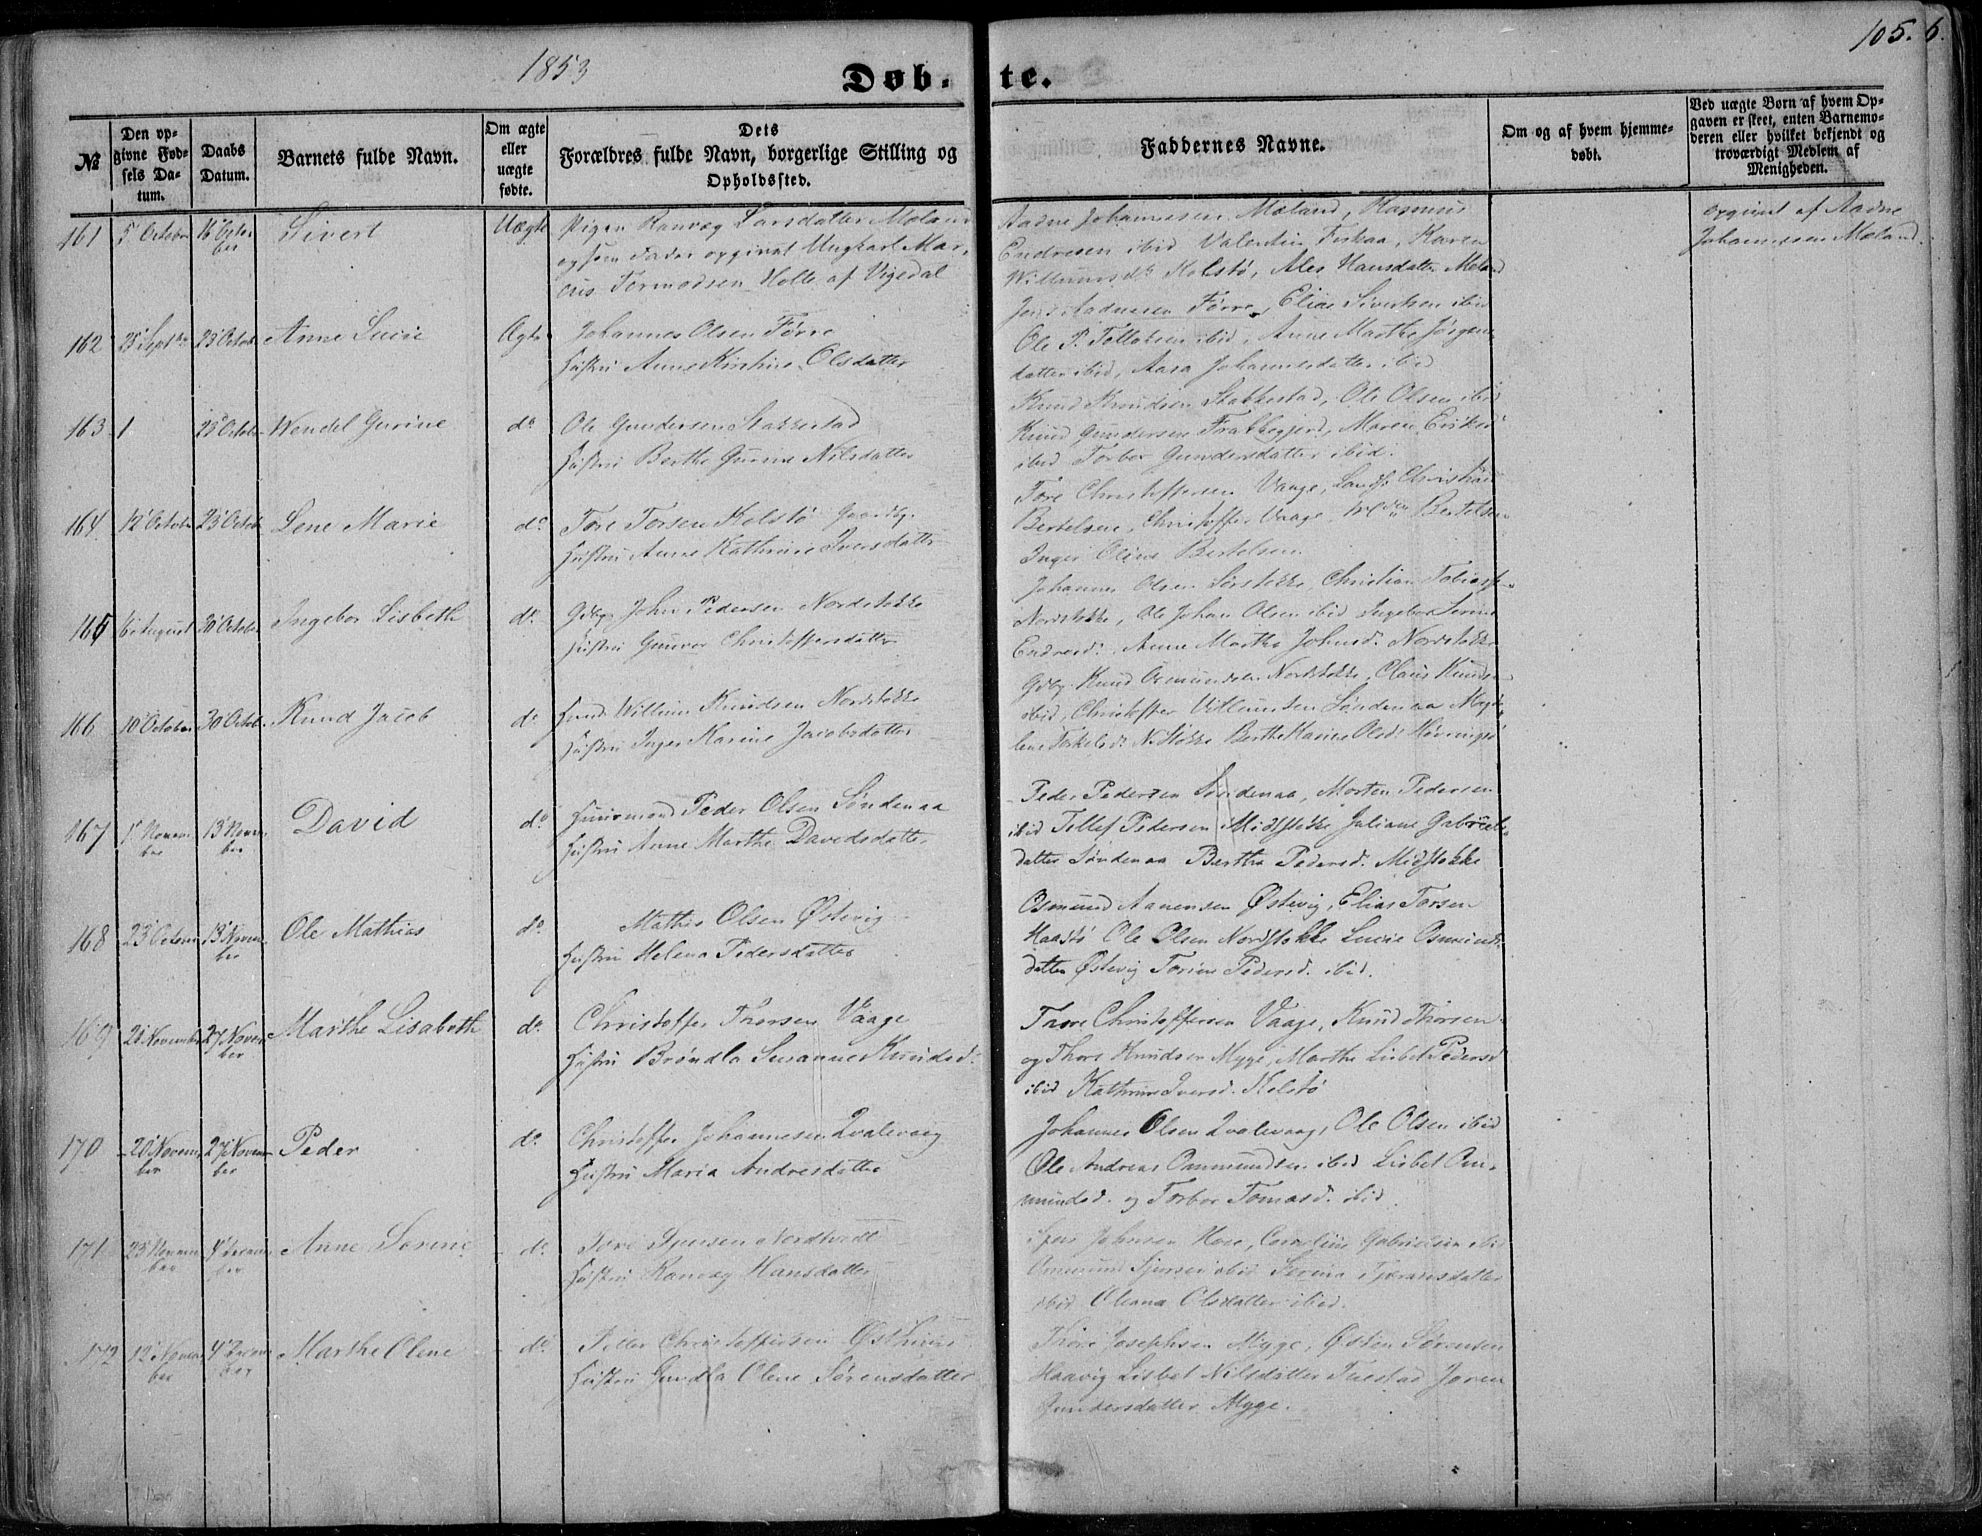 1853
105. 6.
Døb-te.
№
Den op-
givne Fød-
sels Da-
tum.
Daabs
Datum.
Barnets fulde Navn.
Om ægte
eller
uægte
fødte.
Dets
Forældres fulde Navn, borgerlige Stilling og
Opholdssted.
Faddernes Navne.
Om og af hvem hjemme-
døbt.
Ved uægte Børn af hvem Op-
gaven er skeet, enten Barnemo-
deren eller hvilket bekjendt og
troværdigt Medlem af
Menigheden.
161 5 October 16 October Sivert Uægte Pigen Ranvæg Larsdatter Mæland
og som Fader opgivet Ungkarl Mar-
cus Tormodsen Holle af Vigedal
Aadne Johannesen Mæland, Rasmus
Endresen ibid Valentin Fiskaa, Karen
Willumsd. Kolstø, Ales Hansdatter Mæland
opgivet af Aadne
Johannessen Mæland.
162 25 Septbr 23 Octob Anne Lucie Ægte Johannes Olsen Førre
Hustru Anne Kirstine Olsdatter
Jens Aadnesen Førre, Elias Sivertsen ibid
Ole P. Tollaksen ibid, Anne Marthe Jørgens
datter ibid, Aasa Johannesdatter ibid
163 1 23 October Wendel Gurine do Ole Gundersen Stakkestad
Hustru Berthe Gurine Nilsdatter
Knud Knudsen Stakkestad, Ole Olsen ibid
Knud Gundersen Frakkagjerd, Maren Eriksd
ibid Torbor Gundersdatter ibid.
164 12 October 23 Octob Lene Marie do Tore Torsen Kolstø Gaardbr.
Hustru Anne Kathrine Iversdatter
Tore Christoffersen Vaage, Christian
Bertelsen, Christoffer Vaage, Bertelsen
Inger Oline Bertelsen
165 6 August 30 October Ingebor Lisbeth do Gdbr John Pedersen Nordstokke
Hustru Gunvor Christoffersdatter
Johannes Olsen Sørstokke, Christian Tobias
Nordstokke, Ole Johan Olsen ibid Ingebor Serine
Endresd. Anne Marthe Johnsd. Nordstokke
166 10 October 30 Octob. Knud Jacob do Willum Knudsen Nordstokke
Hustru Inger Karine Jacobsdatter
Gdbr. Knud Osmundsen Nordstokke, Claus Knudsen
ibid, Christoffer Villumsen Søndenaa Magda
lene Torkelsd. N. Stokke Berthe Karine Olsd. Høvring
167 1 November 13 November David do Huusmand Peder Olsen Søndenaa
Hustru Anne Marthe Davidsdatter
Peder Pedersen Søndenaa, Morten Pedersen
ibid Tollef Pedersen Midstokke Juliane Gabriels
datter Søndenaa Bertha Pedersd. Midstokke
168 23 October 13 November Ole Mathias do Mathis Olsen Østevig
Hustru Helena Pedersdatter
Osmund Aanensen Østevig, Elias Torsen
Haastø Ole Olsen Nordstokke Lucie Osmunds
datter Østevig Torine Pedersd. ibid.
169 21 November 27 November Marthe Lisabeth do Christoffer Thorsen Vaage
Hustru Brøndla Susanne Knudsd.
Thore Christoffersen Vaage, Knud Thorsen
og Thore Knudsen Myge, Marthe Lisbet Pedersd
ibid Kathrine Iversd. Kolstø
170 20 November 27 November Peder do Christoffer Johannesen Qvalevaag
Hustru Maria Andresdatter
Johannes Olsen Qvalevaag, Ole Olsen ibid
Ole Andreas Ommundsen ibid Lisbet Om-
mundsd. og Torbor Tomasd. ibid
171 23 November 4 December Anne Serine do Tore Sjursen Nordtvedt
Hustru Ranvæg Hansdatter
Johnsen Hose, Cornelius Gabrielsen ibid
Ommund Sjursen ibid Serina
ibid Oliana Olsdatter ibid.
172 12 November 4 December Marthe Olene do Peder Christoffersen Østhuus
Hustru Gundla Olene Sørensdatter
Thore Josephsen Myge, Østen Sørensen
Haavig Lisbet Nilsdatter Tuestad Joren
Gundersdatter Myge.